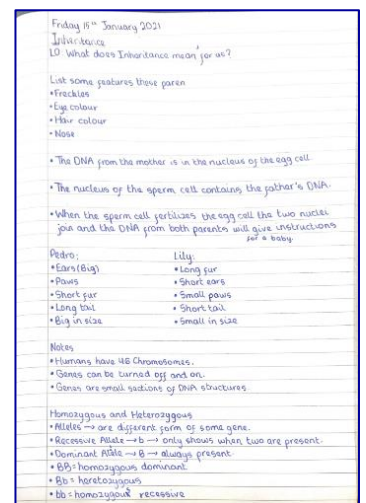 Friday 15th January 2021
Inheritance
LO: What does Inheritance mean for us?
List some features these paren
• Freckles
• Eye colour
• Hair colour
• Nose
• The DNA from the mother is in the nucleus of the egg cell.
• The nucleus of the sperm cell contains the father's DNA.
• When the sperm cell fertilizes the egg cell the two nuclei
join and the DNA from both parents will give instructions
for a baby.
Pedro: Lily:
• Ears (Big) • Long fur
• Paws • Short ears
• Short fur • Small paws
• Long tail • Short tail
• Big in size • Small in size
Notes
• Humans have 46 Chromosomes.
• Genes can be turned off and on.
• Genes are small sections of DNA structures.
Homozygous and Heterozygous
• Alleles → are different form of some gene.
• Recessive Allele → b → only shows when two are present.
• Dominant Allele → B → always present.
• BB = homozygous dominant
• Bb = heretozygous
• bb = homozygous recessive